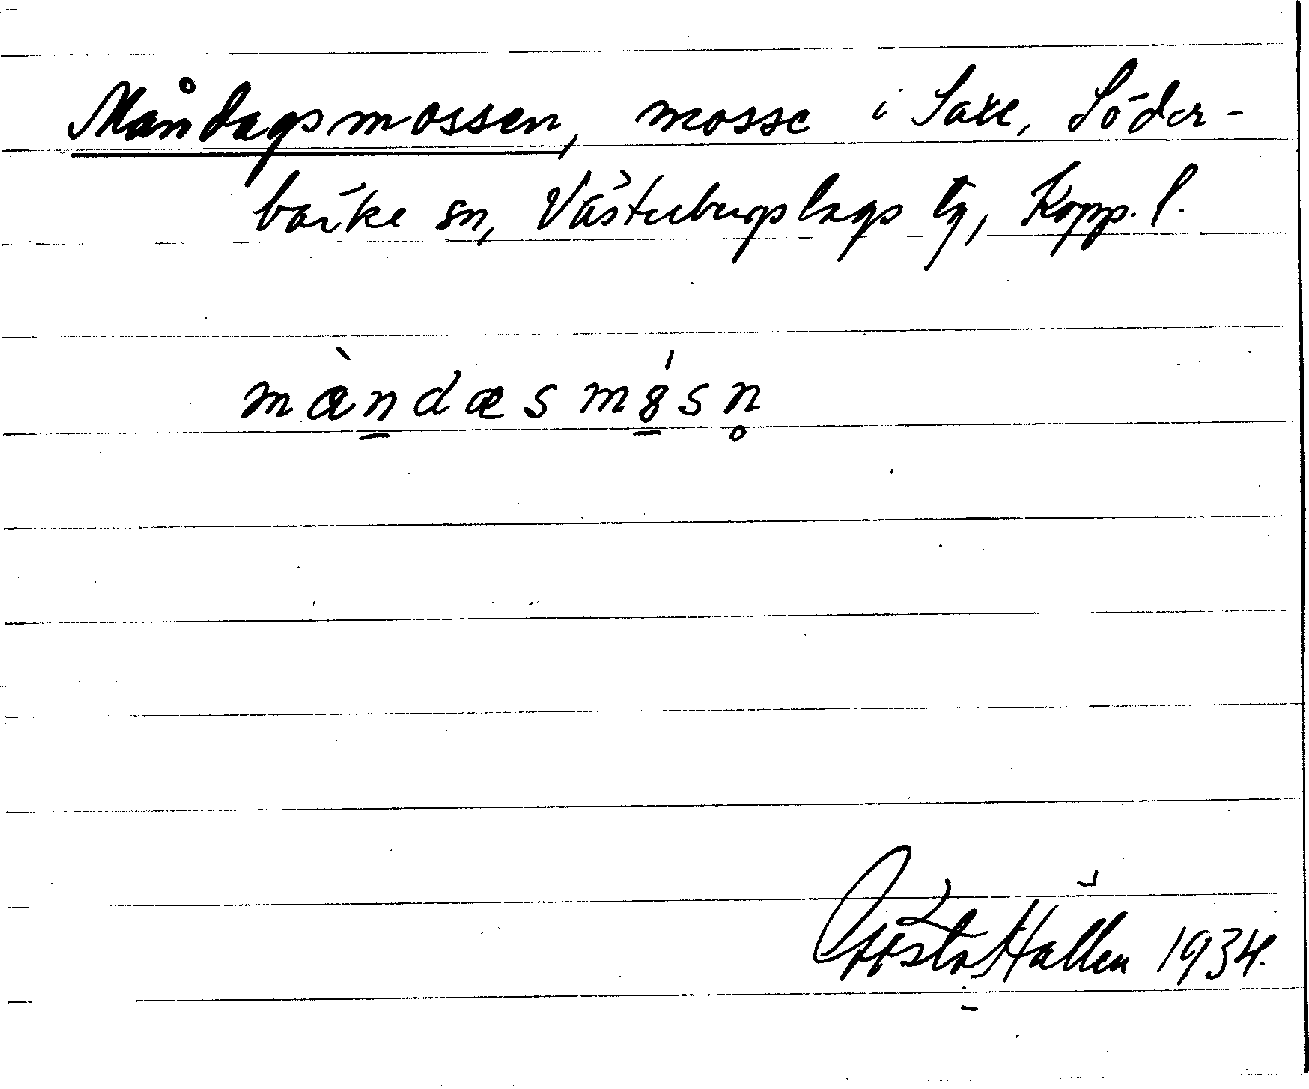 Måndagsmossen, mosse i Saxe, Söder-
bärke sn, Västerbergslags tg, Kopp. l.
mæ̀n̠dæsmó̠sn̥
Gösta Hallén 1934.